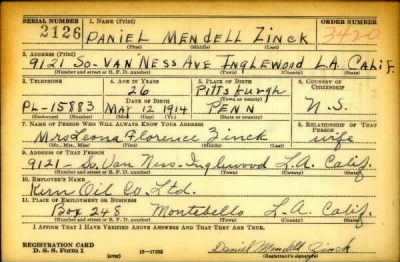 SERIAL NUMBER 1. NAME (Print) ORDER NUMBER
2126 DANIEL MENDELL ZINCK 3420
(First) (Middle) (Last)
2. ADDRESS (Print)
9121 SO-VAN NESS AVE INGLEWOOD L.A. CALIF.
(Number and street or R. F. D. number) (Town) (County) (State)
3. TELEPHONE 4. AGE IN YEARS 5. PLACE OF BIRTH 6. COUNTRY OF CITIZENSHIP
26 Pittsburgh
DATE OF BIRTH (Town or county)
PL-15883 MAY 12 1914 PENN U.S.
(Exchange) (Number) (Mo.) (Day) (Yr.) (State or country)
7. NAME OF PERSON WHO WILL ALWAYS KNOW YOUR ADDRESS 8. RELATIONSHIP OF THAT PERSON
Mrs Florence Zinck wife
(Mr., Mrs., Miss) (First) (Middle) (Last)
9. ADDRESS OF THAT PERSON
9121 - So. Van Ness - Inglewood L.A. Calif.
(Number and street or R. F. D. number) (Town) (County) (State)
10. EMPLOYER'S NAME
Kern Oil Co. Ltd.
11. PLACE OF EMPLOYMENT OR BUSINESS
Box 248 Montebello L.A. Calif.
(Number and street or R. F. D. number) (Town) (County) (State)
I AFFIRM THAT I HAVE VERIFIED ABOVE ANSWERS AND THAT THEY ARE TRUE.
REGISTRATION CARD
D. S. S. Form 1 (over) 16-17105 Daniel Mendell Zinck
(Registrant's signature)